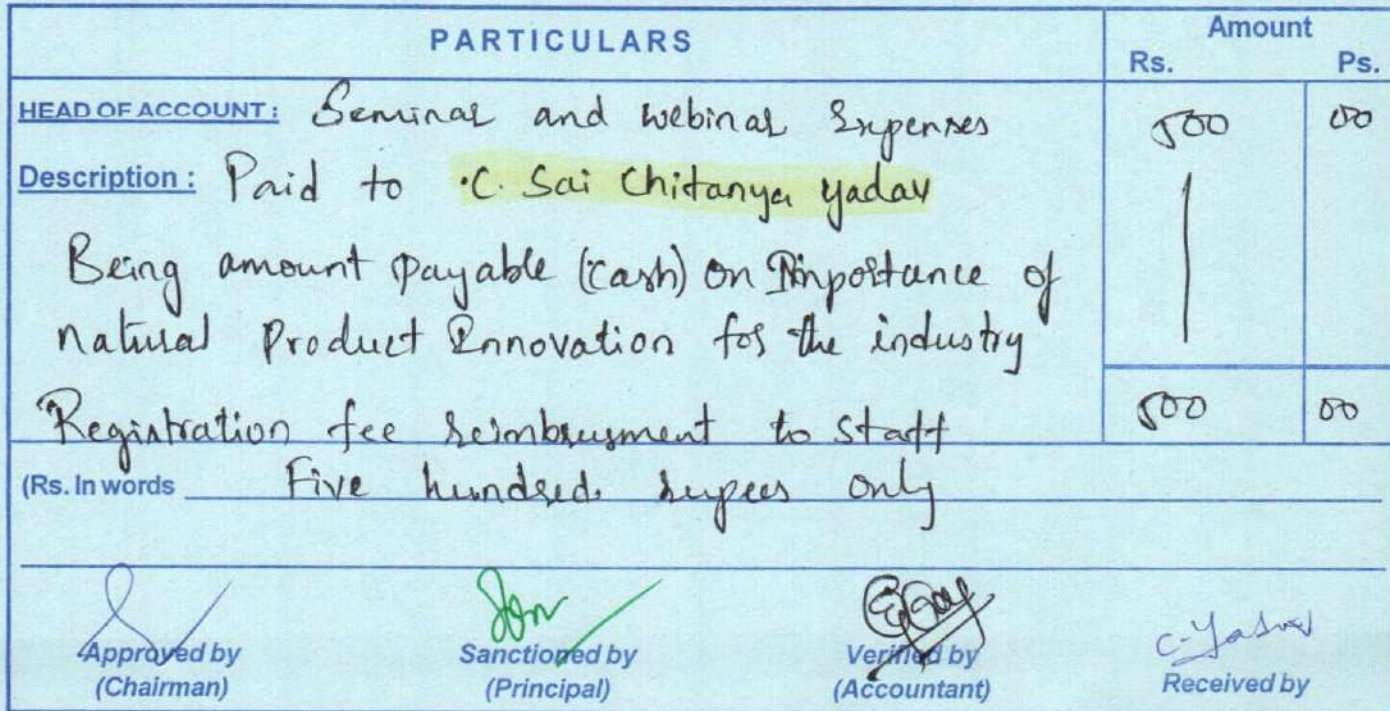 PARTICULARS
Amount
Rs. Ps.
HEAD OF ACCOUNT: Seminar and webinar Expenses 500 00
Description: Paid to C. Sai Chitanya yadav
Being amount payable (cash) on Importance of
natural Product Innovation for the industry
Registration fee reimbrusment to staff 500 00
(Rs. In words Five hundred rupees only
C. Yadav
Approved by Sanctioned by Verified by Received by
(Chairman) (Principal) (Accountant)